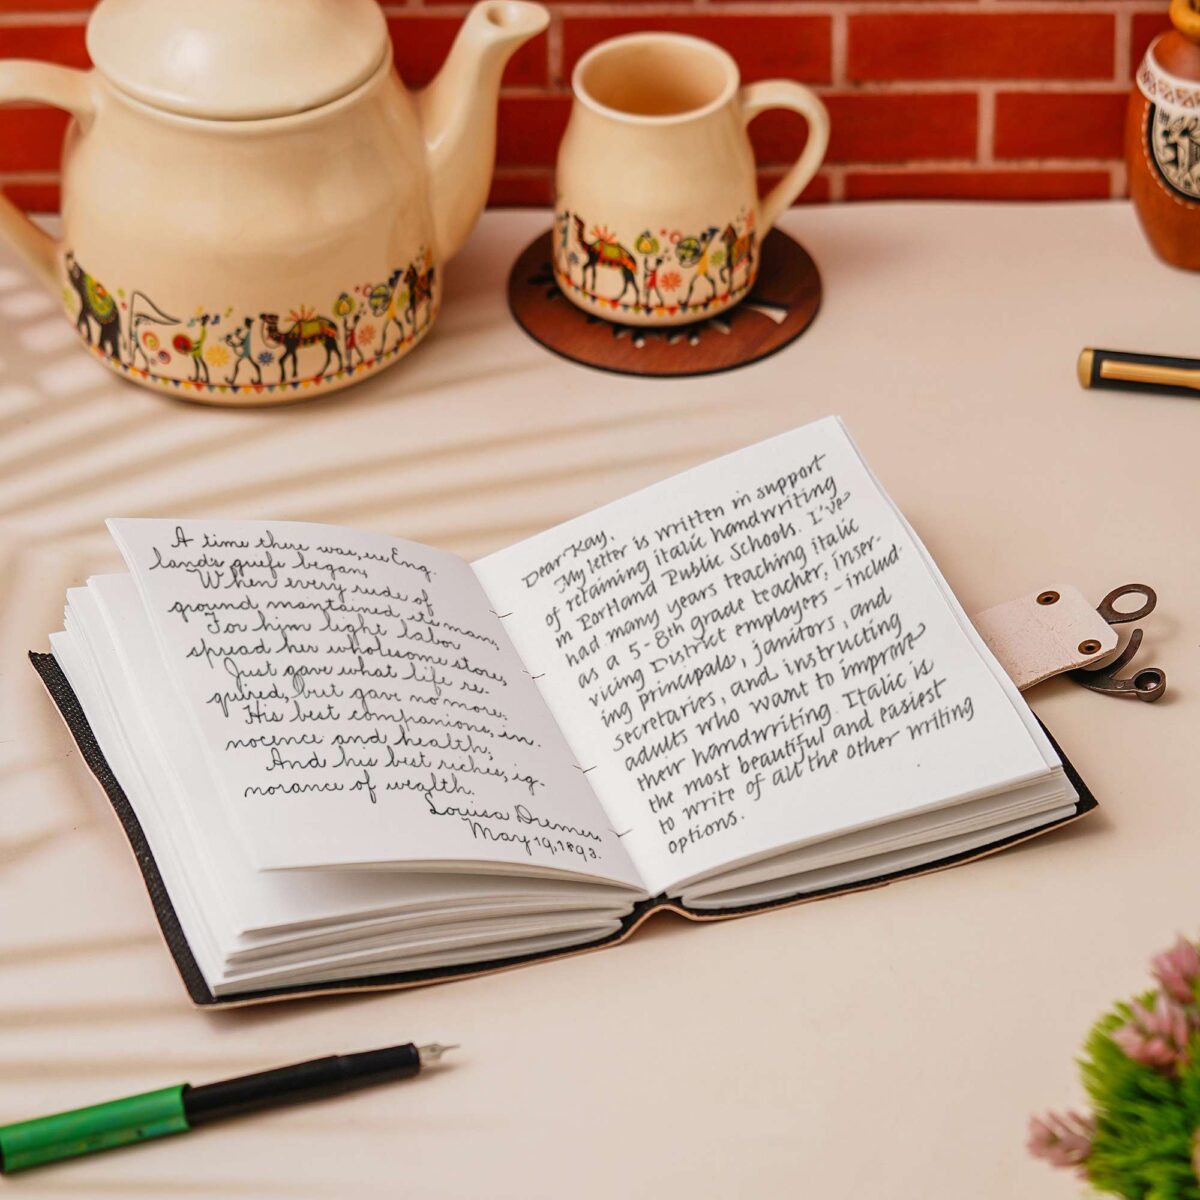 A time there was, ere Eng.
land's griefs began,
When every rude of
ground mantained its man,
For him light labor
spread her wholesome store,
Just gave what life re-
quired, but gave no more.
His best companions, in.
nocence and health,
And his best riches, ig-
norance of wealth.
Louisa
May 19, 1893.
Dear Kay,
My letter is written in support
of retaining italic handwriting
in Portland Public Schools. I've
had many years teaching italic
as a 5-8th grade teacher, inser-
vicing District employees - includ-
ing principals, janitors, and
secretaries, and instructing
adults who want to improve
their handwriting. Italic is
the most beautiful and easiest
to write of all the other writing
options.